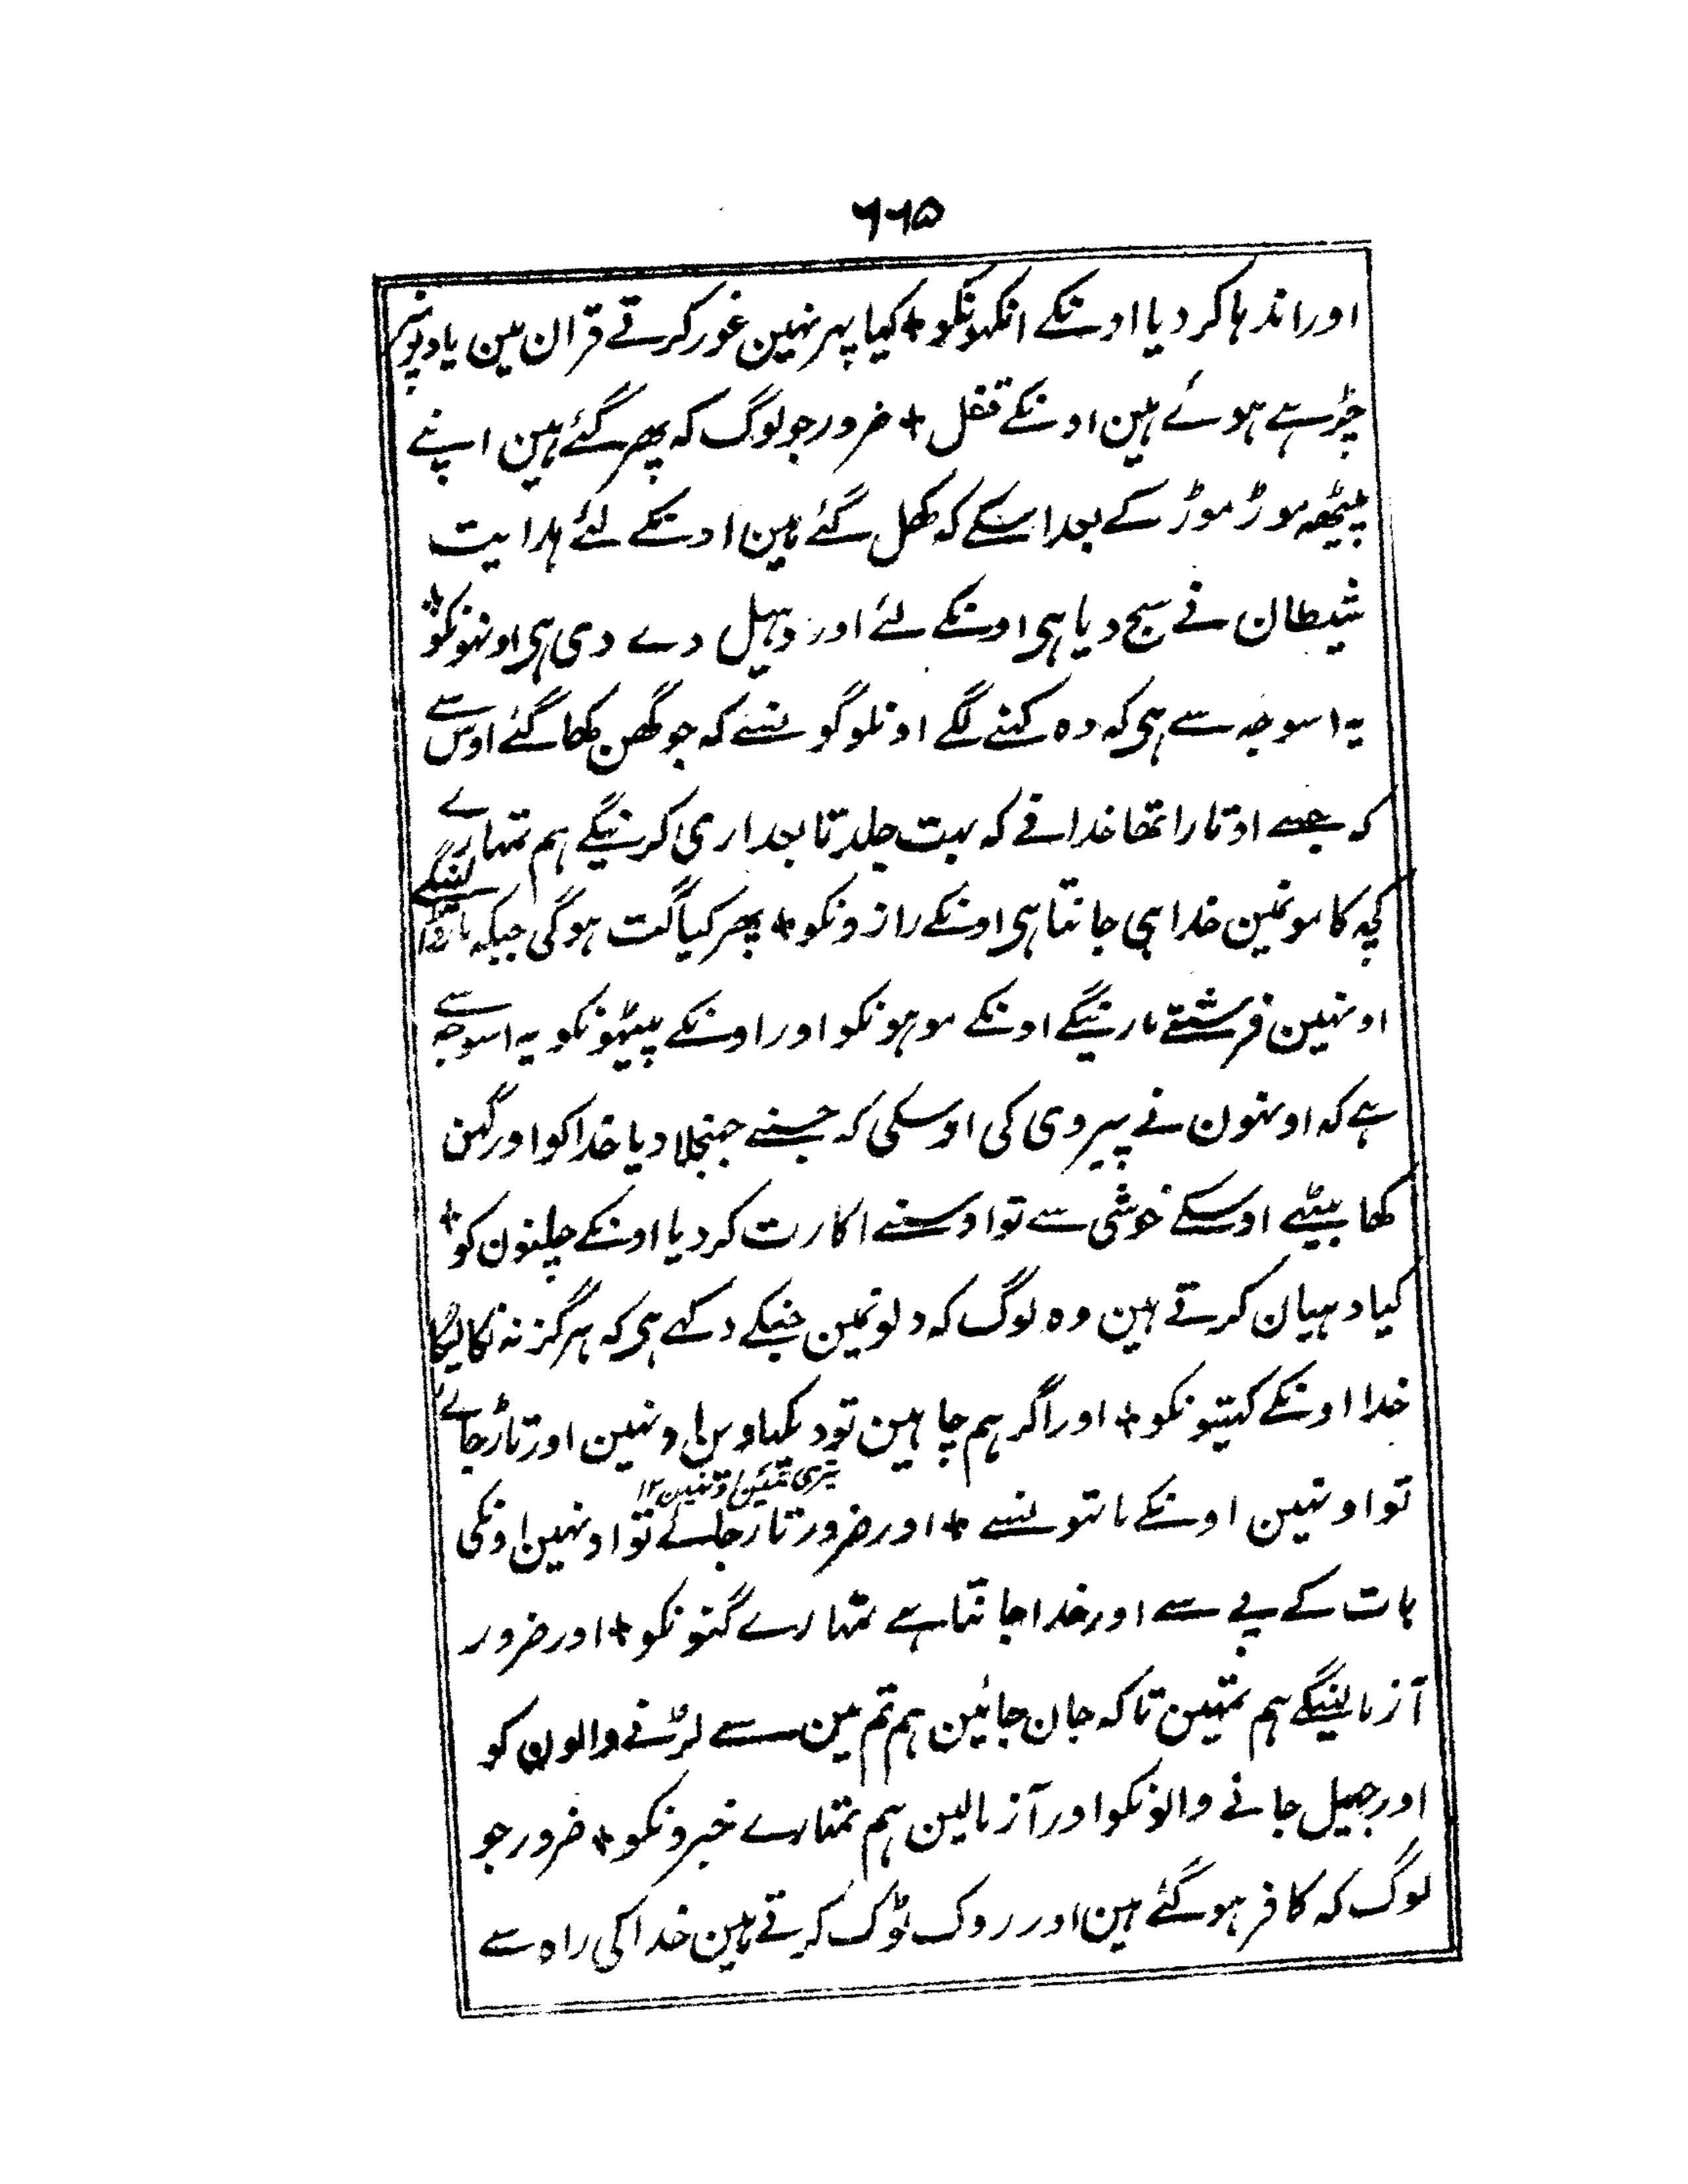 ۶۶۵
اور اندہا کر دیا اونکے انکہونکو + کیا پہر نہین غور کرتے قران مین یا دلونپر
چڑہے ہوئے ہین اونکے قفل + ضرور جو لوگ کہ پھر گئے ہین اپنے
پیٹھہ موڑ موڑ کے بعد اسکے کہ کھل گئے ہین اونکے لئے ہدایت
شیطان نے سج دیا ہی اونکے لئے اور ڈہیل دے دی ہی اونہونکو +
یہ اسوجہ سے ہی کہ وہ کہنے لگے اونلوگونسے کہ جو گھن کھا گئے اوس سے
کہ جسے اوتارا تھا خدا نے کہ بہت جلد تابعداری کرینگے ہم تمہارے
کچہ کامونمین خدا ہی جانتا ہی اونکے رازونکو + پھر کیا گت ہوگی جبکہ مار ڈالینگے
اونہین فرشتے مارینگے اونکے موہونکو اور اونکے پیٹہونکو یہ اسوجہ سے
ہے کہ اونہون نے پیروی کی اوسکی کہ جسنے جہنجلا دیا خدا کو اور گہن
کھا بیٹہے اوسکے خوشی سے تو اوسنے اکارت کر دیا اونکے چلنون کو +
کیا دہیان کرتے ہین وہ لوگ کہ دلونمین جنکے دکہہ ہی کہ ہرگز نہ نکالیگا
خدا اونکے کینونکو + اور اگر ہم چاہین تو دیکہاوین اونہین اور تاڑ جائے
تو اونہین اونکے ماتہونسے + اور ضرور تاڑ جائے تو اونہین اونکی
بات کے پے سے اور خدا جانتا ہے تمہارے گنونکو + اور ضرور
آزمالینگے ہم تمہین تاکہ جان جائین ہم تم مین سے لڑنے والون کو
اور جہیل جانے والونکو اور آزمالین ہم تمہارے خبرونکو + ضرور جو
لوگ کہ کافر ہو گئے ہین اور روک ٹوک کرتے ہین خدا کی راہ سے